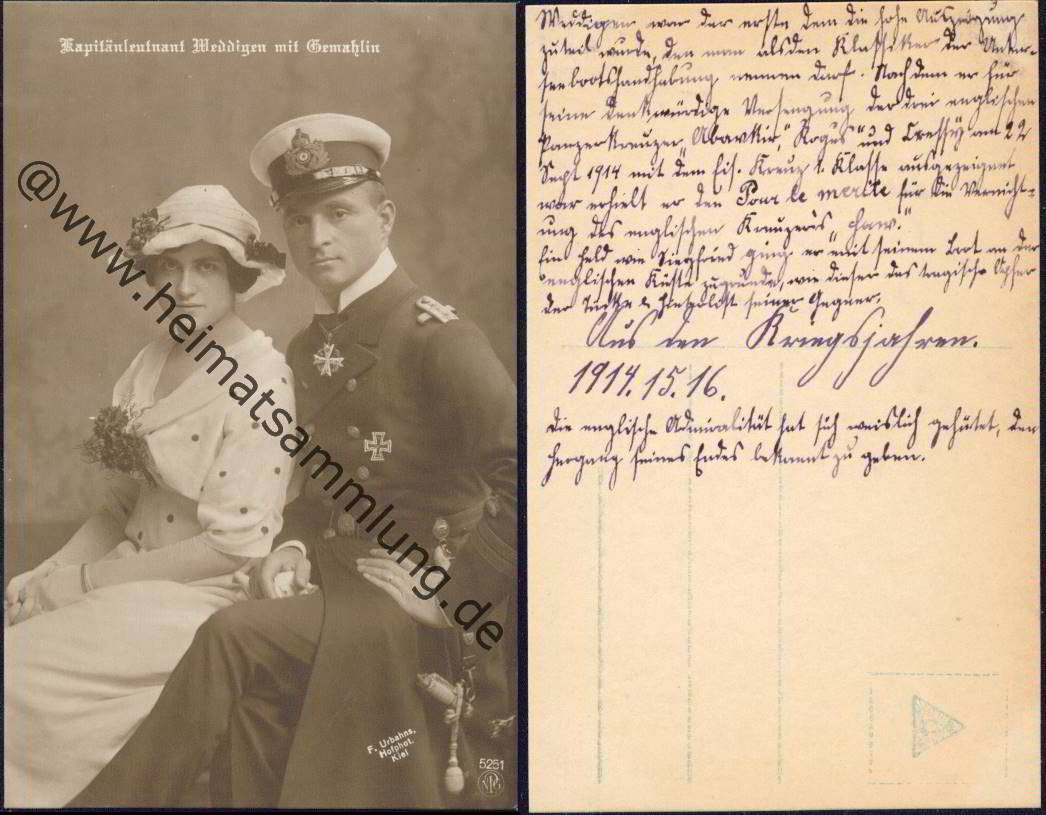 Kapitänleutnant Weddigen mit Gemahlin
@www.heimatsammlung.de
F. Urbahns,
Hofphot.
Kiel
5251
NPG
Weddigen war der erste dem die hohe Auszeichnung
zuteil wurde, den man als den Klassiker der Unter-
seebootshandhabung nennen darf. Nachdem er für
seine denkwürdige Versengung der drei englischen
Panzerkreuzer „Abavkir", „Hogue" und Cressy am 22
Sept 1914 mit dem Eis. Kreuz 1. Klasse ausgezeichnet
war erhielt er den Pour le merite für die Vernicht-
ung des englischen Kreuzers „Haw".
Ein Held wie Siegfried ging er mit seinem Boot an der
englischen Küste zugrunde, wie dieser das tragische Opfer
der Tücke & seiner Gegner.
Aus den Kriegsjahren.
1914.15.16.
Die englische Admiralität hat sich weislich gehütet, den
Hergang seines Endes bekannt zu geben.